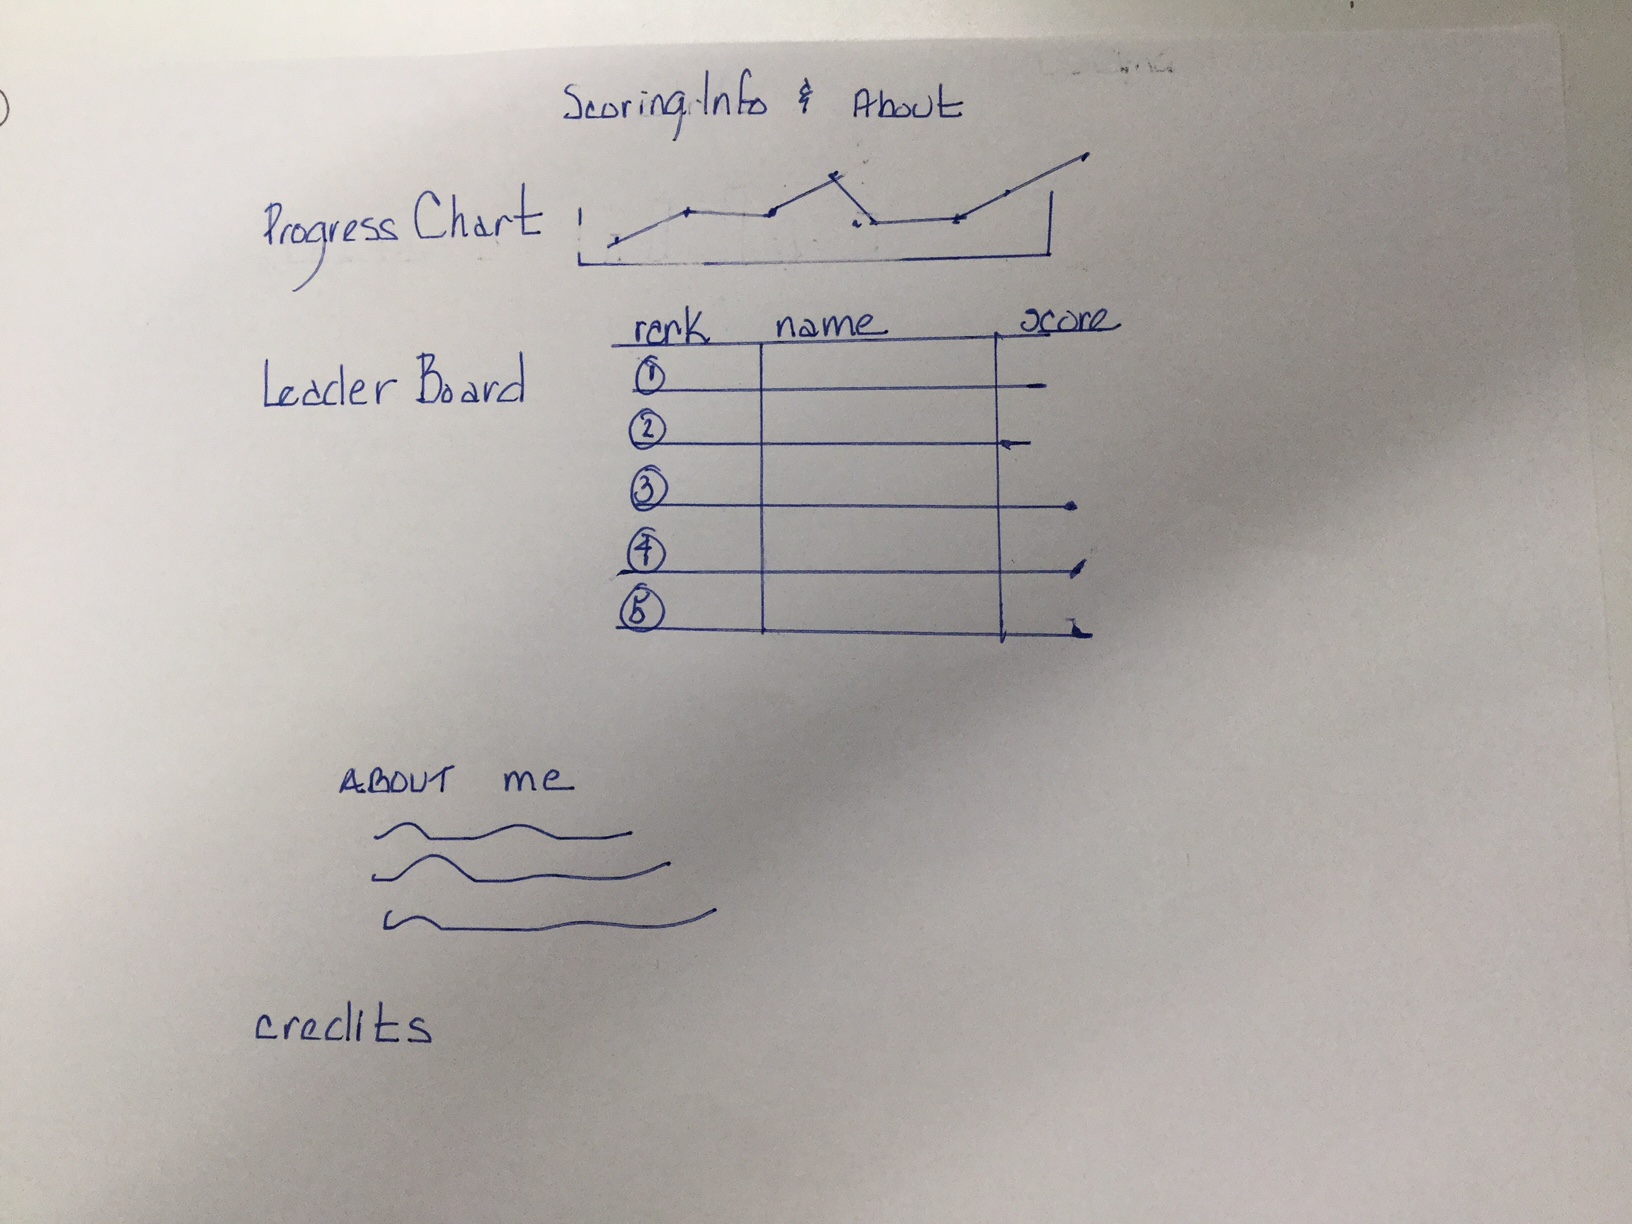 Scoring Info & About
Progress Chart
Leader Board
rank name score
1
2
3
4
5
About me
credits